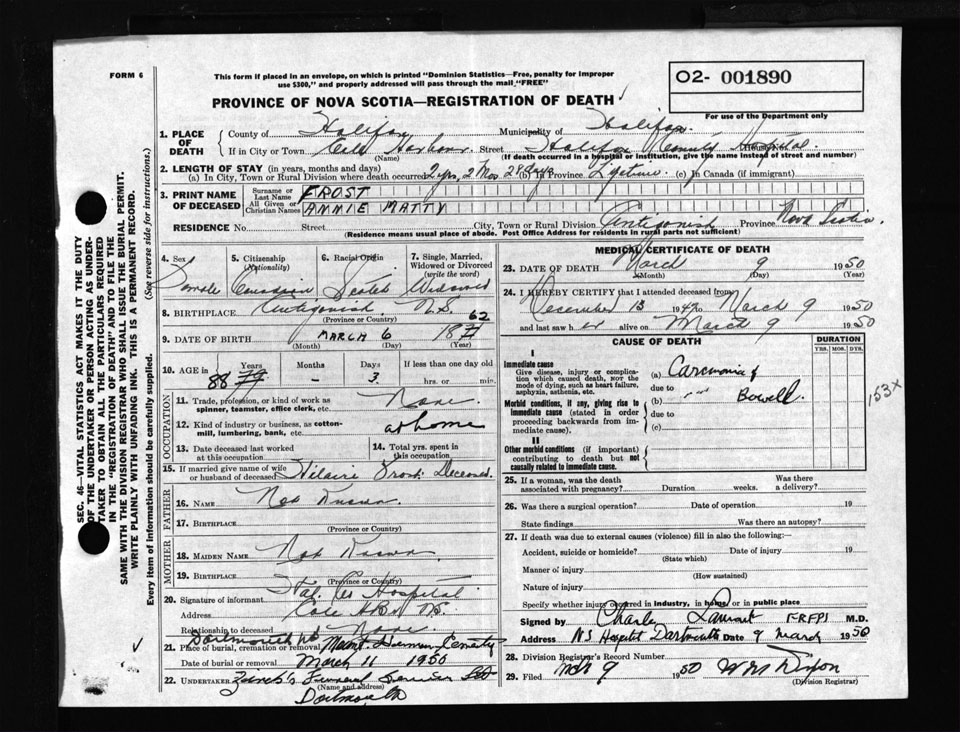 FORM 6
This form if placed in an envelope, on which is printed "Dominion Statistics—Free, penalty for improper
use $300," and properly addressed will pass through the mail "FREE"
O2- 001890
For use of the Department only
PROVINCE OF NOVA SCOTIA—REGISTRATION OF DEATH
1. PLACE OF DEATH
County of Halifax Municipality of Halifax
If in City or Town Cole Harbour Street Halifax County Hospital
(Name) (If death occurred in a hospital or institution, give the name instead of street and number)
2. LENGTH OF STAY (in years, months and days)
(a) In City, Town or Rural Division where death occurred 2 yrs, 2 Mos 28 days (b) In Province Lifetime (c) In Canada (if immigrant)
3. PRINT NAME OF DECEASED
Surname or Last Name FROST
All Given or Christian Names ANNIE MATTY
RESIDENCE No. Street City, Town or Rural Division Antigonish Province Nova Scotia
(Residence means usual place of abode. Post Office Address for residents in rural parts not sufficient)
4. Sex
5. Citizenship (Nationality)
6. Racial Origin
7. Single, Married, Widowed or Divorced (write the word)
Female Canadian Scotch Widowed
8. BIRTHPLACE Antigonish N.S.
(Province or Country)
62
9. DATE OF BIRTH MARCH 6 18
(Month) (Day) (Year)
10. AGE in Years Months Days If less than one day old
88 – 3 hrs. or min.
OCCUPATION
11. Trade, profession, or kind of work as spinner, teamster, office clerk, etc. None
12. Kind of industry or business, as cotton-mill, lumbering, bank, etc. at home
13. Date deceased last worked at this occupation
14. Total yrs. spent in this occupation
15. If married give name of wife or husband of deceased Hilaire Frost Deceased
FATHER
16. NAME Not Known
17. BIRTHPLACE
(Province or Country)
MOTHER
18. MAIDEN NAME Not Known
19. BIRTHPLACE
(Province or Country)
20. Signature of informant Hfx. Co Hospital
Address Cole HBR NS.
Relationship to deceased None
Dartmouth NS
21. Place of burial, cremation or removal Mount Hermon Cemetery
Date of burial or removal March 11 1950
22. UNDERTAKER Zinck's Funeral Service Ltd
(Name and address)
Dartmouth
MEDICAL CERTIFICATE OF DEATH
23. DATE OF DEATH March 9 1950
(Month) (Day) (Year)
24. I HEREBY CERTIFY that I attended deceased from
December 13 1947 to March 9 1950
and last saw her alive on March 9 1950
CAUSE OF DEATH
DURATION
YRS. MOS. DYS.
I
Immediate cause
Give disease, injury or complication which caused death, NOT the mode of dying, such as heart failure, asphyxia, asthenia, etc.
(a) Carcinoma of
due to
(b) Bowell.
due to
(c)
153X
Morbid conditions, if any, giving rise to immediate cause (stated in order proceeding backwards from immediate cause).
II
Other morbid conditions (if important) contributing to death but not causally related to immediate cause.
25. If a woman, was the death associated with pregnancy? Duration weeks. Was there a delivery?
26. Was there a surgical operation? Date of operation 19
State findings Was there an autopsy?
27. If death was due to external causes (violence) fill in also the following:
Accident, suicide or homicide? Date of injury 19
(State which)
Manner of injury
(How sustained)
Nature of injury
Specify whether injury occurred in industry, in home or in public place
Signed by Charles Lamont FRFPS M.D.
Address N.S Hospital Dartmouth Date 9 March 1950
28. Division Registrar's Record Number
29. Filed Mch 9 1950 W M Dixon
(Division Registrar)
SEC. 46—VITAL STATISTICS ACT MAKES IT THE DUTY
OF THE UNDERTAKER OR PERSON ACTING AS UNDER-
TAKER TO OBTAIN ALL THE PARTICULARS REQUIRED
IN THE "REGISTRATION OF DEATH" AND TO FILE THE
SAME WITH THE DIVISION REGISTRAR WHO SHALL ISSUE THE BURIAL PERMIT.
WRITE PLAINLY WITH UNFADING INK. THIS IS A PERMANENT RECORD.
Every item of information should be carefully supplied. (See reverse side for instructions.)